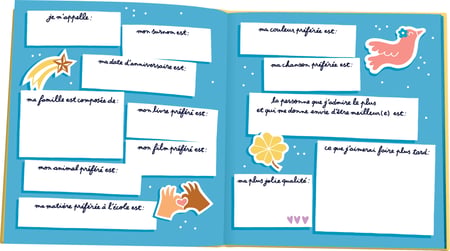 je m'appelle :
mon surnom est :
ma date d'anniversaire est :
ma famille est composée de :
mon livre préféré est :
mon film préféré est :
mon animal préféré est :
ma matière préférée à l'école est :
ma couleur préférée est :
ma chanson préférée est :
la personne que j'admire le plus
et qui me donne envie d'être meilleur(e) est :
ce que j'aimerai faire plus tard :
ma plus jolie qualité :